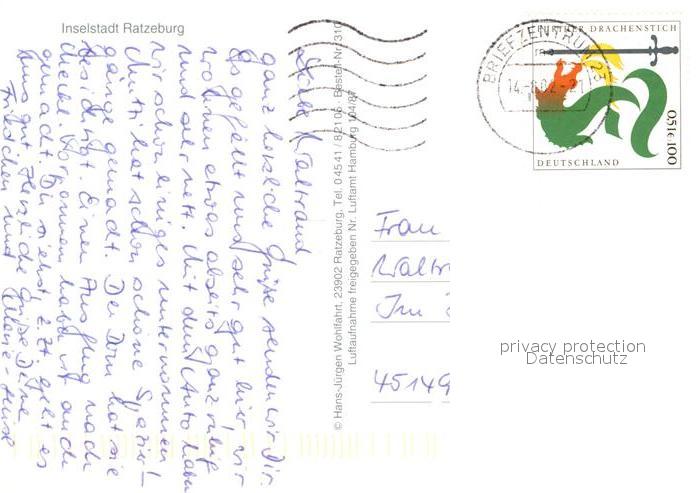 Inselstadt Ratzeburg
Liebe Waltraud
ganz herzliche Grüße senden wir Dir.
Es gefällt uns sehr gut hier, wir
wohnen etwas abseits ganz
und sehr nett. Mit dem Auto haben
wir schon einiges unternommen
Mutti hat schon schöne Spazier-
gänge gemacht. Den Dom hat sie
besichtigt. Einen Ausflug nach
haben ist auch
gemacht. Du siehst z. Zt. geht es
uns gut. Herzliche Grüße Deine
Friedchen und
© Hans-Jürgen Wohlfahrt, 23902 Ratzeburg, Tel. 0 45 41 / 82 106 · Bestell-Nr. 310
Luftaufnahme freigegeben Nr. Luftamt Hamburg 104/87
BRIEFZENTRUM 23
14.-8.02-21
FURTHER DRACHENSTICH
DEUTSCHLAND
0,51€ 100
Frau
Waltr
Im
45149
privacy protection
Datenschutz